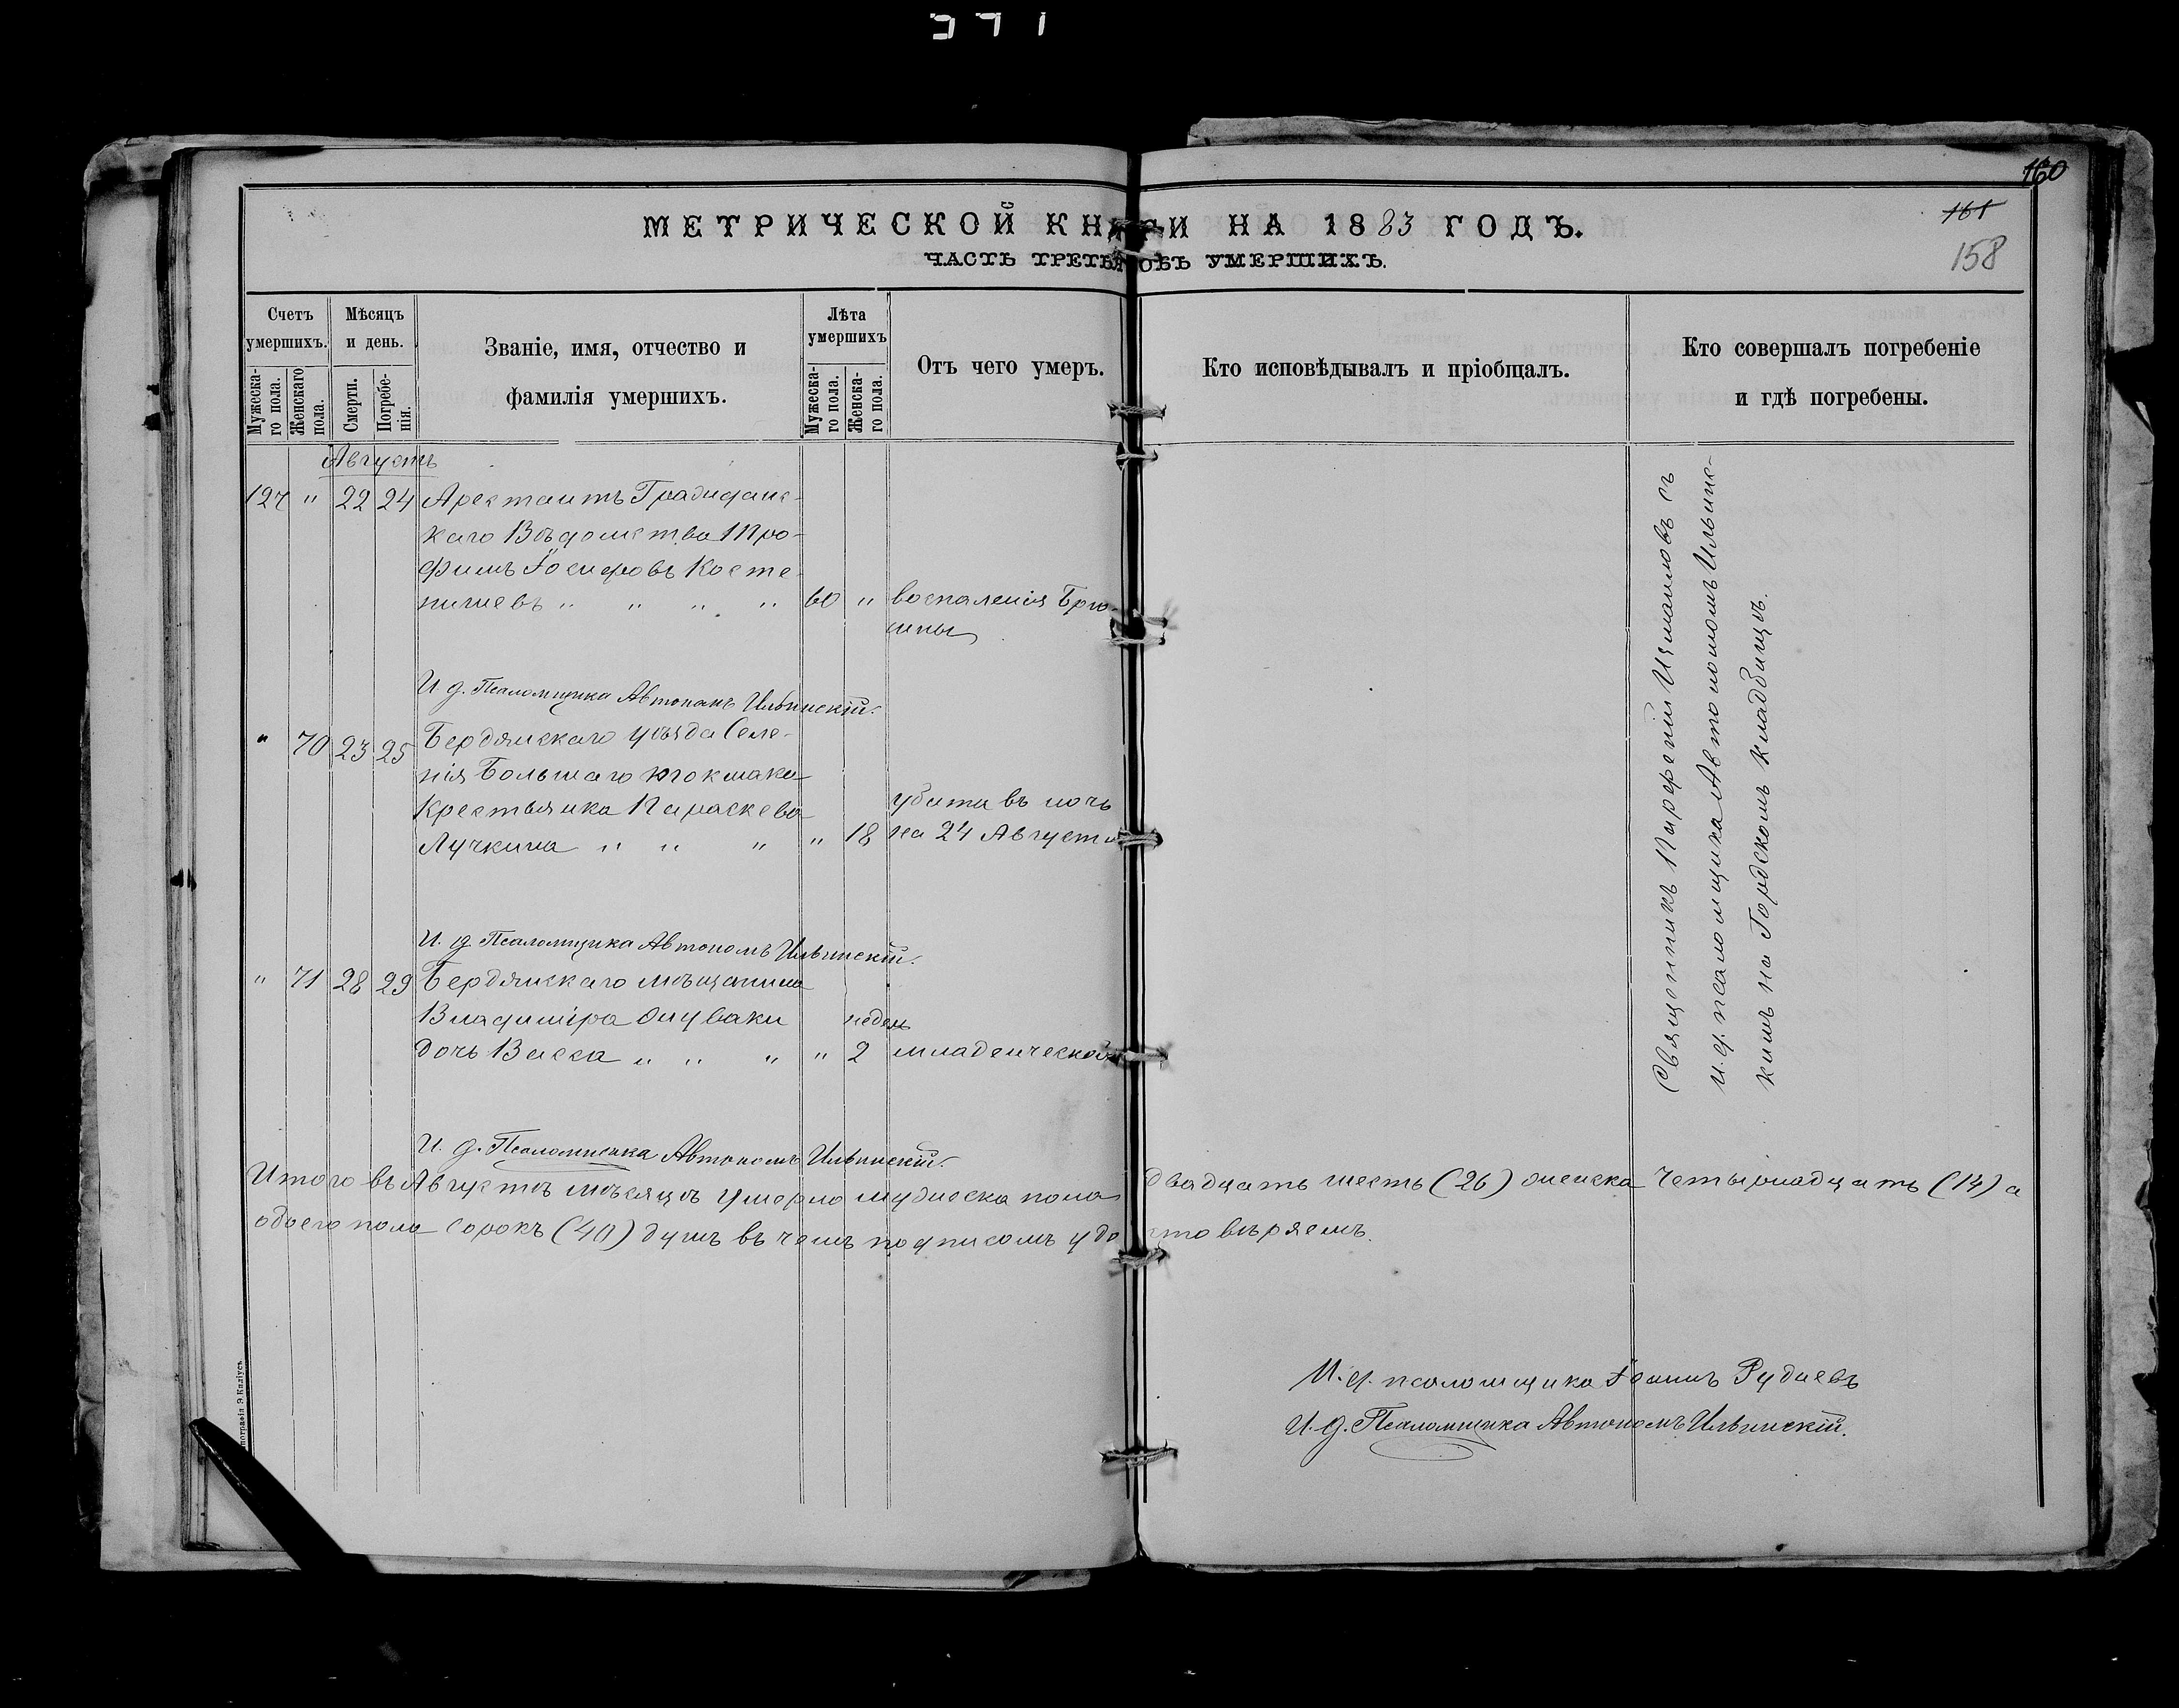 160
161
158
МЕТРИЧЕСКОЙ КНИГИ НА 1883 ГОДЪ.
ЧАСТЬ ТРЕТЬЯ ОБЪ УМЕРШИХЪ.
Счетъ умершихъ.
Мужеска-го пола.
Женскаго пола.
Мѣсяцъ и день.
Смерти.
Погребе-нія.
Званіе, имя, отчество и
фамилія умершихъ.
Лѣта умершихъ
Мужеска-го пола.
Женска-го пола.
Отъ чего умеръ.
Кто исповѣдывалъ и пріобщалъ.
Кто совершалъ погребеніе
и гдѣ погребены.
Августъ
127 " 22 24 Арестантъ Гражданс-
каго Вѣдомства Тро-
фимъ Іосифовъ Косте-
" " " " 60 " воспаленія Брю-
шины
И. д. Псаломщика Автономъ Ильинскій.
" 70 23 25 Бердянскаго уѣзда Селе-
нія Большаго Токмака
Крестьянка Параскева
Лучкина " " " " 18
убита въ ночь
на 24 Августа
И. д. Псаломщика Автономъ Ильинскій.
" 71 28 29 Бердянскаго мѣщанина
Владиміра недѣль
дочь Васса " " " " 2 младенческой
И. д. Псаломщика Автономъ Ильинскій.
Священникъ Парфеній Измаиловъ съ
и. д. псаломщика Автономомъ Ильинс-
кимъ на Городскомъ кладбищѣ.
Итого въ Августѣ мѣсяцѣ умерло мужеска пола двадцать шесть (26) женска четырнадцать (14) а
обоего пола сорокъ (40) душъ въ чемъ подписомъ удостовѣряемъ.
И. д. псаломщика Іоаннъ Рудневъ
И. д. Псаломщика Автономъ Ильинскій.